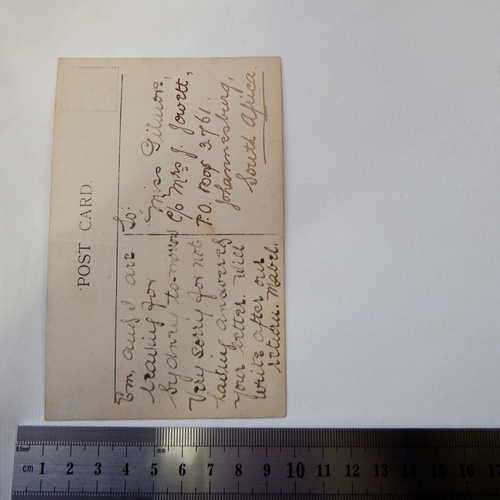 POST CARD.
Em, and I are
leaving for
Sydney to-morrow
Very sorry for not
having answered
your letter. Will
write after our
return. Mabel.
To:
Miss Gilmore,
C/o Mrs J. Jowett,
P.O. Box 3761.
Johannesburg,
South Africa.
0.5mm
mm
cm 1 2 3 4 5 6 7 8 9 10 11 12 13 14 15 16